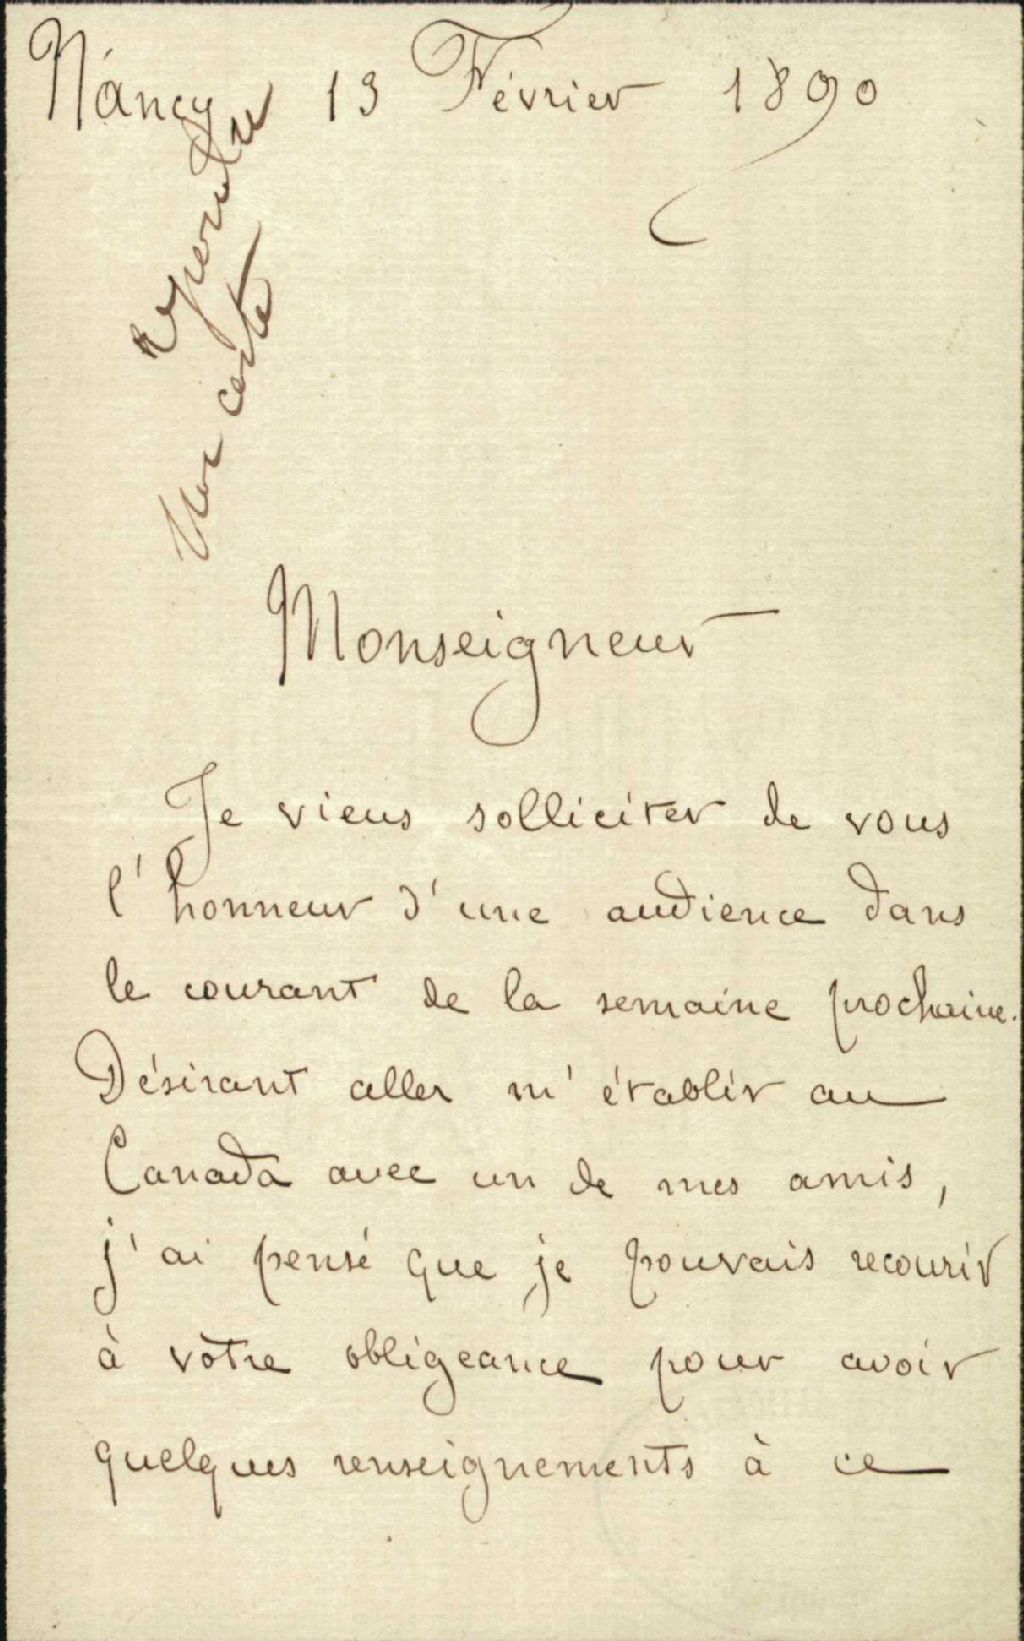 Nancy 13 Février 1890
Repondre
Une carte
Monseigneur
Je viens solliciter de vous
l'honneur d'une audience dans
le courant de la semaine prochaine.
Désirant aller m'établir au
Canada avec un de mes amis,
j'ai pensé que je pouvais recourir
à vôtre obligeance pour avoir
quelques renseignements à ce